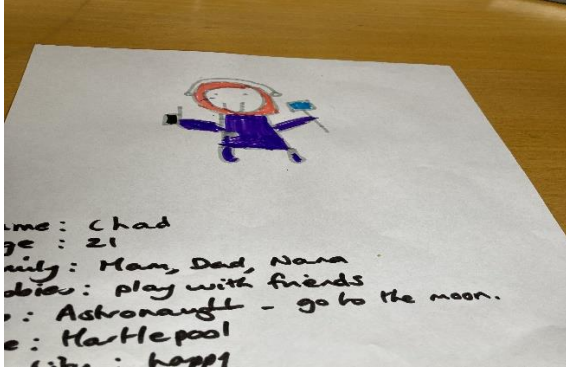 ame: Chad
ge : 21
mily: Mam, Dad, Nana
bbies: play with friends
: Astronaught - go to the moon.
e: Hartlepool
: happy